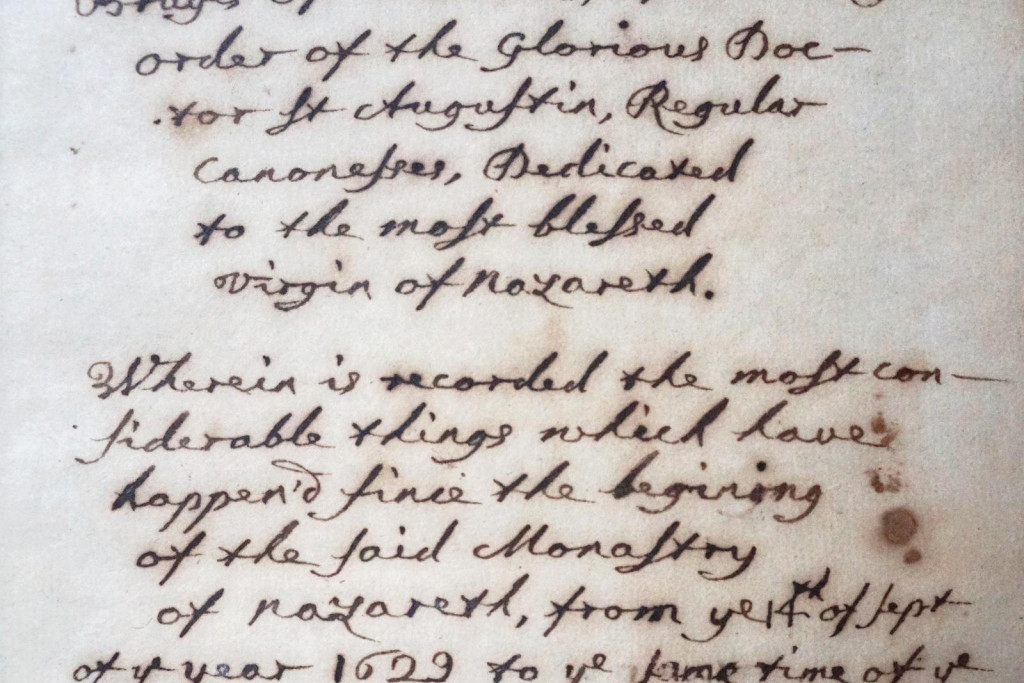 order of the Glorious Doc-
tor St Augustin, Regular
Canonesses, Dedicated
to the most blessed
virgin of Nazareth.
Wherein is recorded the most con-
siderable things which have
happen'd since the begining
of the said Monastry
of Nazareth, from ye 14th of Sept
of ye year 1629 to ye same time of ye